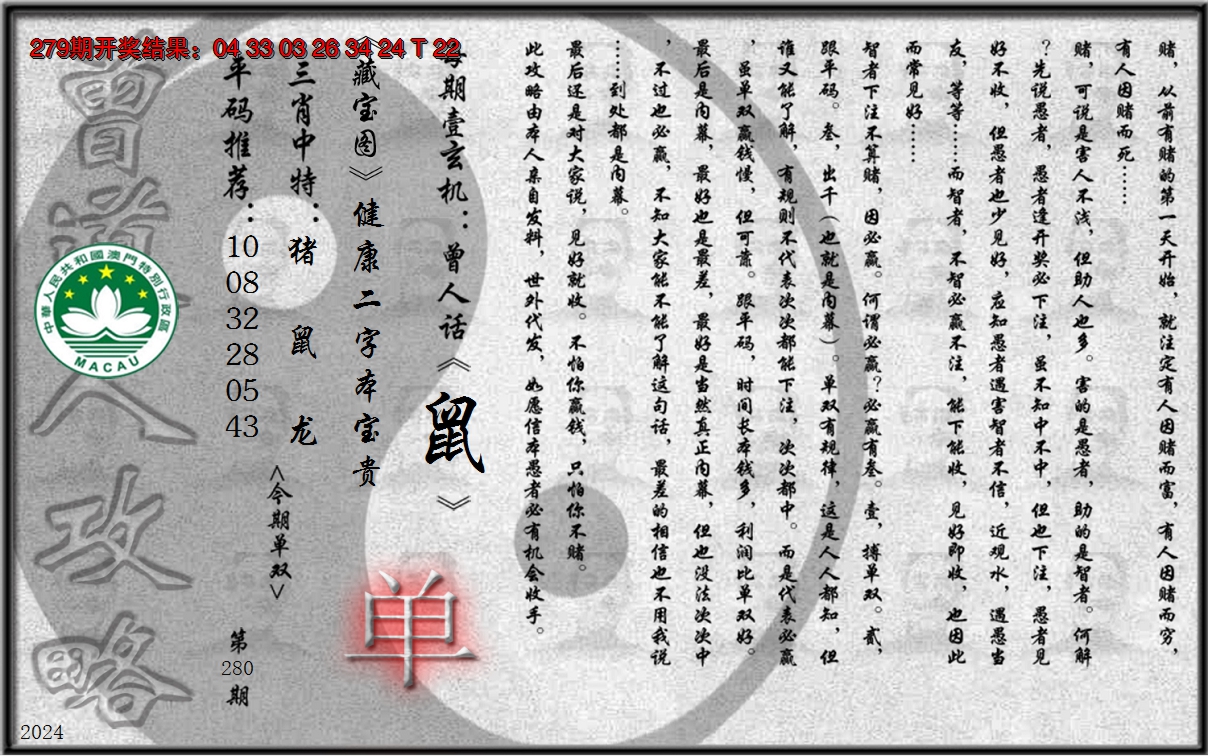 279期开奖结果：04 33 03 26 34 24 T 22
赌，从前有赌的第一天开始，就注定有人因赌而富，有人因赌而穷，
有人因赌而死……
赌，可说是害人不浅，但助人也多。害的是愚者，助的是智者。何解
？先说愚者，愚者逢开奖必下注，虽不知中不中，但也下注，愚者见
好不收，但愚者也少见好，应知愚者遇害智者不信，近观水，遇愚当
友，等等……而智者，不智必赢不注，能下能收，见好即收，也因此
而常见好……
智者下注不算赌，因必赢。何谓必赢？必赢有叁。壹，搏单双。贰，
跟平码。叁，出千（也就是内幕）。单双有规律，这是人人都知，但
谁又能了解，有规则不代表次次都能下注，次次都中。而是代表必赢
，虽单双赢钱慢，但可靠。跟平码，时间长本钱多，利润比单双好。
最后是内幕，最好也是最差，最好是当然真正内幕，但也没法次次中
，不过也必赢，不知大家能不能了解这句话，最差的相信也不用我说
……到处都是内幕。
最后还是对大家说，见好就收。不怕你赢钱，只怕你不赌。
此攻略由本人亲自发料，世外代发，如愿信本愚者必有机会收手。
每期壹玄机：曾人话《鼠》
《藏宝图》健康二字本宝贵
单
三肖中特：猪 鼠 龙
<今期单双>
平码推荐：
10
08
32
28
05
43
第
280
期
曾道人攻略
中華人民共和國澳門特別行政區
MACAU
2024